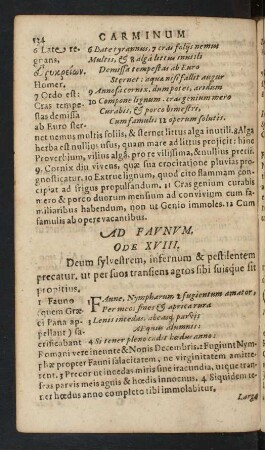 124 CARMINUM
6 Late re 6 Late tyrannus, 7 cras foliis nemus
grans, Multis, & 8 alga littus inutili
Demissa tempestas ab Euro
Homer. Sternet: aquæ nisi fallit augur
7 Ordo est: 9 Annosa cornix. dum potes, aridum
Cras tempe- 10 Compone lignum. cras genium mero
stas demissa Curabis, & porco bimestri,
ab Euro ster- Cum famulis 12 operum solutis.
net nemus multis foliis, & sternet littus alga inutili. 8 Alga
herba est nullius usus, quam mare ad littus projicit: hinc
Proverbium, vilius alga, pro re vilissima, & nullius precii.
9. Cornix diu vivens, quæ sua crocitatione pluvias pro-
gnosticat. 10. Extrue lignum, quod cito flammam con-
cipiat ad frigus propulsandum 11 Cras genium curabis
mero & porco duorum mensium ad convivium cum fa-
miliaribus habendum, non ut Genio immoles. 12 Cum
famulis ab opere vacantibus.
AD FAVNVM.
ODE XVIII.
Deum sylvestrem, infernum & pestilentem
precatur, ut per suos transiens agros sibi suisque sit
propitius,
1 Fauno FAune, Nympharum 2 fugientum amator,
quem Græ- Per meos fines & aprica rura
ci Pana ap- 3 Lenis incedas, abeasq; parvis
pellant) sa- Æquus alumnis:
crificabant 4 Si tener pleno cadit hœdus anno:
Romani vere ineunte & Nonis Decembris. 2 Fugiunt Nym-
phæ propter Fanni salacitatem, ne virginitatem amittе-
rent. 3 Precor ut incedas mitis sine iracundia, utque tran-
seas parvis meis agnis & hœdis innocuus. 4 Siquidem te-
ner hœdus anno completo tibi immolabitur.
Larga